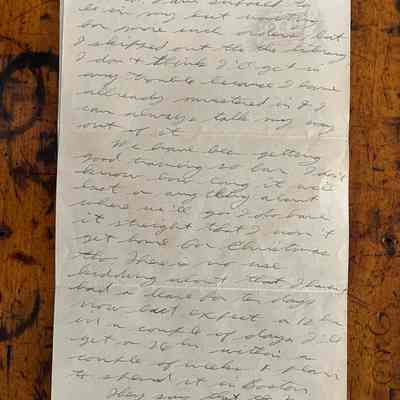 to. I am supposed to
be in my hut waiting
for more such orders but
I skipped out to the library
I don't think I'll get in
any trouble because I have
already mustered in & I
can always talk my way
out of it.
We have been getting
good training so far I don't
know how long it will
last or anything about
where we'll go I do have
it straight that I won't
get home for Christmas
tho There is no use
kidding about that I haven't
had a leave for ten days
now but expect a 12 hr
in a couple of days I'll
get a 36 hr within a
couple of weeks & plan
to spend it in Boston
They say that